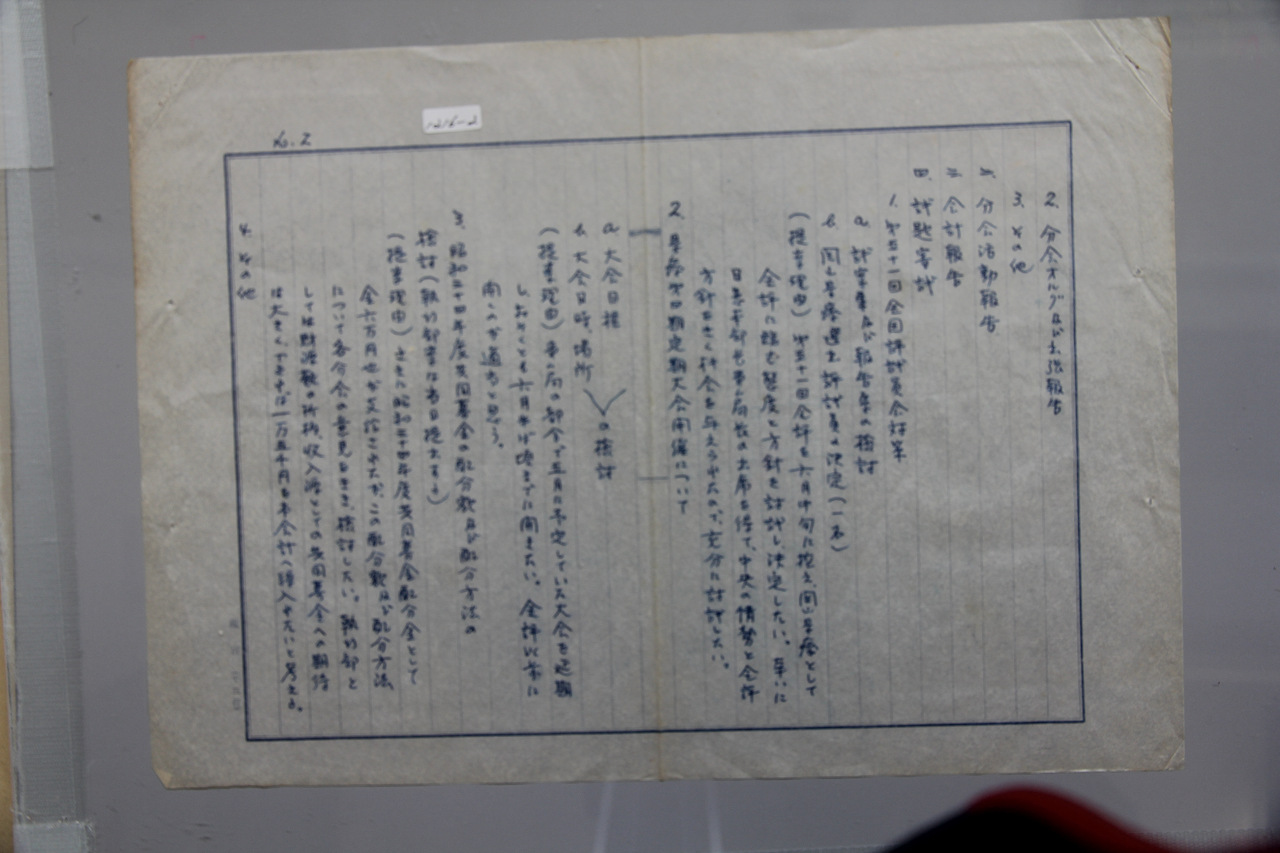 1216-2
No.2
2. 分会オルグ及び出張報告
3. その他
二、分会活動報告
三、会計報告
四、討議審議
1. 第五十一回全国評議員会対策
a. 議案案及び報告案の検討
b. 関ブ医療選出評議員の決定(一名)
(提案理由) 第五十一回全評を六月中旬に控え、関ブ医療として
全評に臨む態度と方針を討議し決定したい。幸いに
日患本部も事ム局長の出席を得て、中央の情勢と全評
方針をきく機会を与えられたので、充分に討議したい。
2. 医療第四期定期大会開催について
a. 大会日程
b. 大会日時、場所
の検討
(提案理由) 事ム局の都合で五月に予定していた大会を延期
し、おそくとも六月半ば頃までに開きたい。全評以前に
開くのが適当と思う。
3. 昭和三十四年度共同募金の配分額及び配分方法の
検討 (執行部案は当日提出する)
(提案理由) さきに昭和三十四年度共同募金配分金として
金六万円也が支給されたが、この配分額及び配分方法
について各分会の意見をきき、検討したい。執行部と
しては財源難の折柄、収入源としての共同募金への期待
は大きく、できれば一万五千円を本会計へ繰入れたいと考える。
4. その他